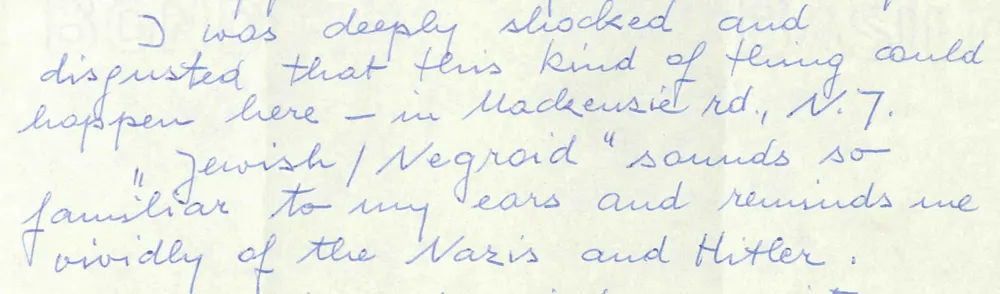 I was deeply shocked and
disgusted that this kind of thing could
happen here – in Mackenzie rd., N.7.
„Jewish / Negroid“ sounds so
familiar to my ears and reminds me
vividly of the Nazis and Hitler.